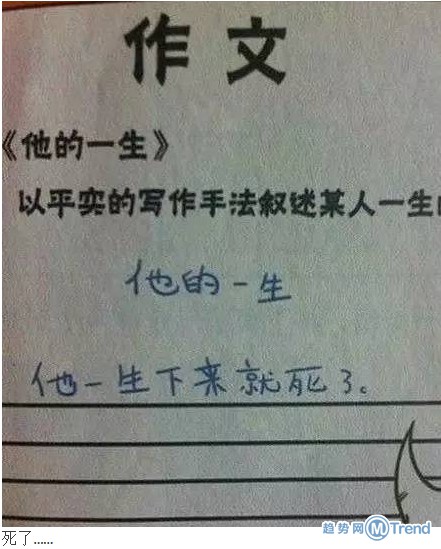 作文
《他的一生》
以平实的写作手法叙述某人一生
他的一生
他一生下来就死了。
趋势网 M Trend
死了……